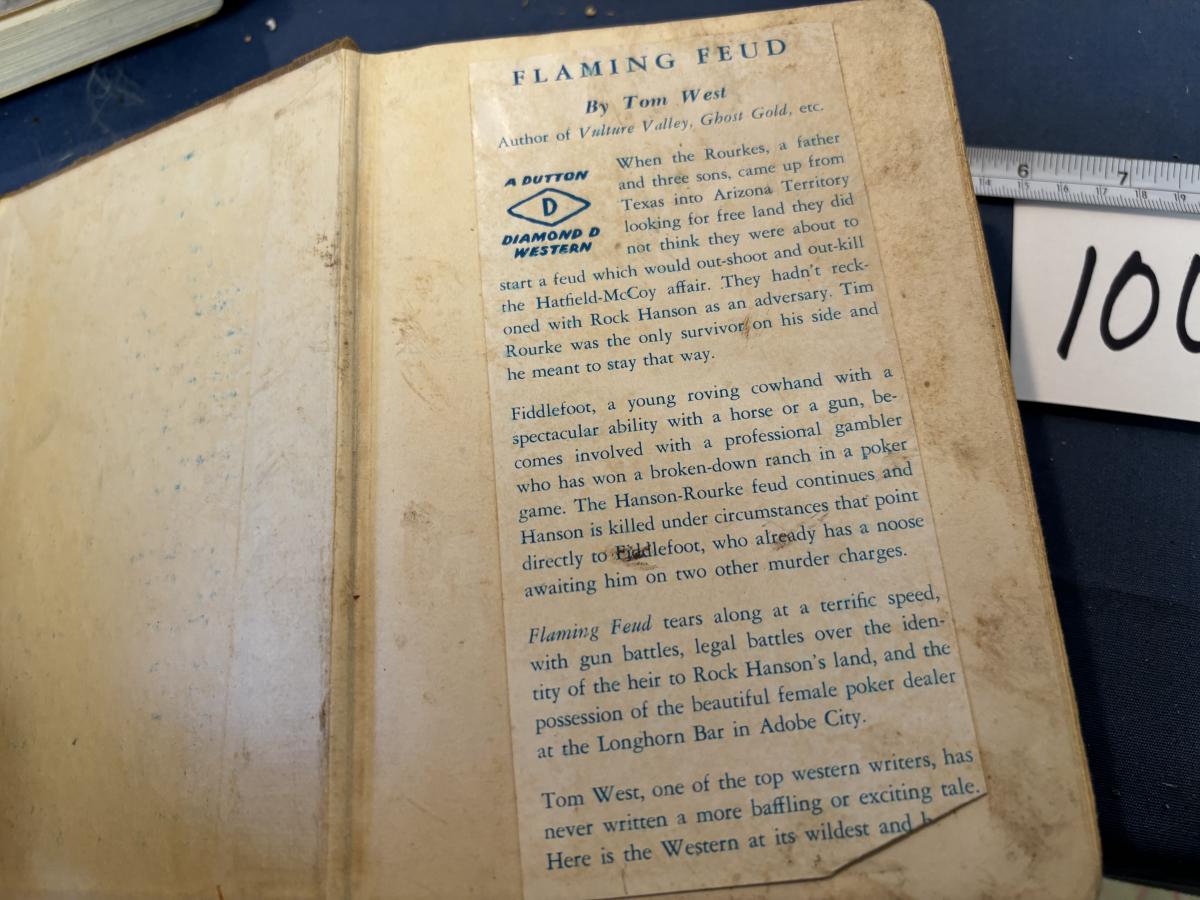 FLAMING FEUD
By Tom West
Author of Vulture Valley, Ghost Gold, etc.
A DUTTON
D
DIAMOND D
WESTERN
When the Rourkes, a father
and three sons, came up from
Texas into Arizona Territory
looking for free land they did
not think they were about to
start a feud which would out-shoot and out-kill
the Hatfield-McCoy affair. They hadn't reck-
oned with Rock Hanson as an adversary. Tim
Rourke was the only survivor on his side and
he meant to stay that way.
Fiddlefoot, a young roving cowhand with a
spectacular ability with a horse or a gun, be-
comes involved with a professional gambler
who has won a broken-down ranch in a poker
game. The Hanson-Rourke feud continues and
Hanson is killed under circumstances that point
directly to Fiddlefoot, who already has a noose
awaiting him on two other murder charges.
Flaming Feud tears along at a terrific speed,
with gun battles, legal battles over the iden-
tity of the heir to Rock Hanson's land, and the
possession of the beautiful female poker dealer
at the Longhorn Bar in Adobe City.
Tom West, one of the top western writers, has
never written a more baffling or exciting tale.
Here is the Western at its wildest and
6
7
16
17
18